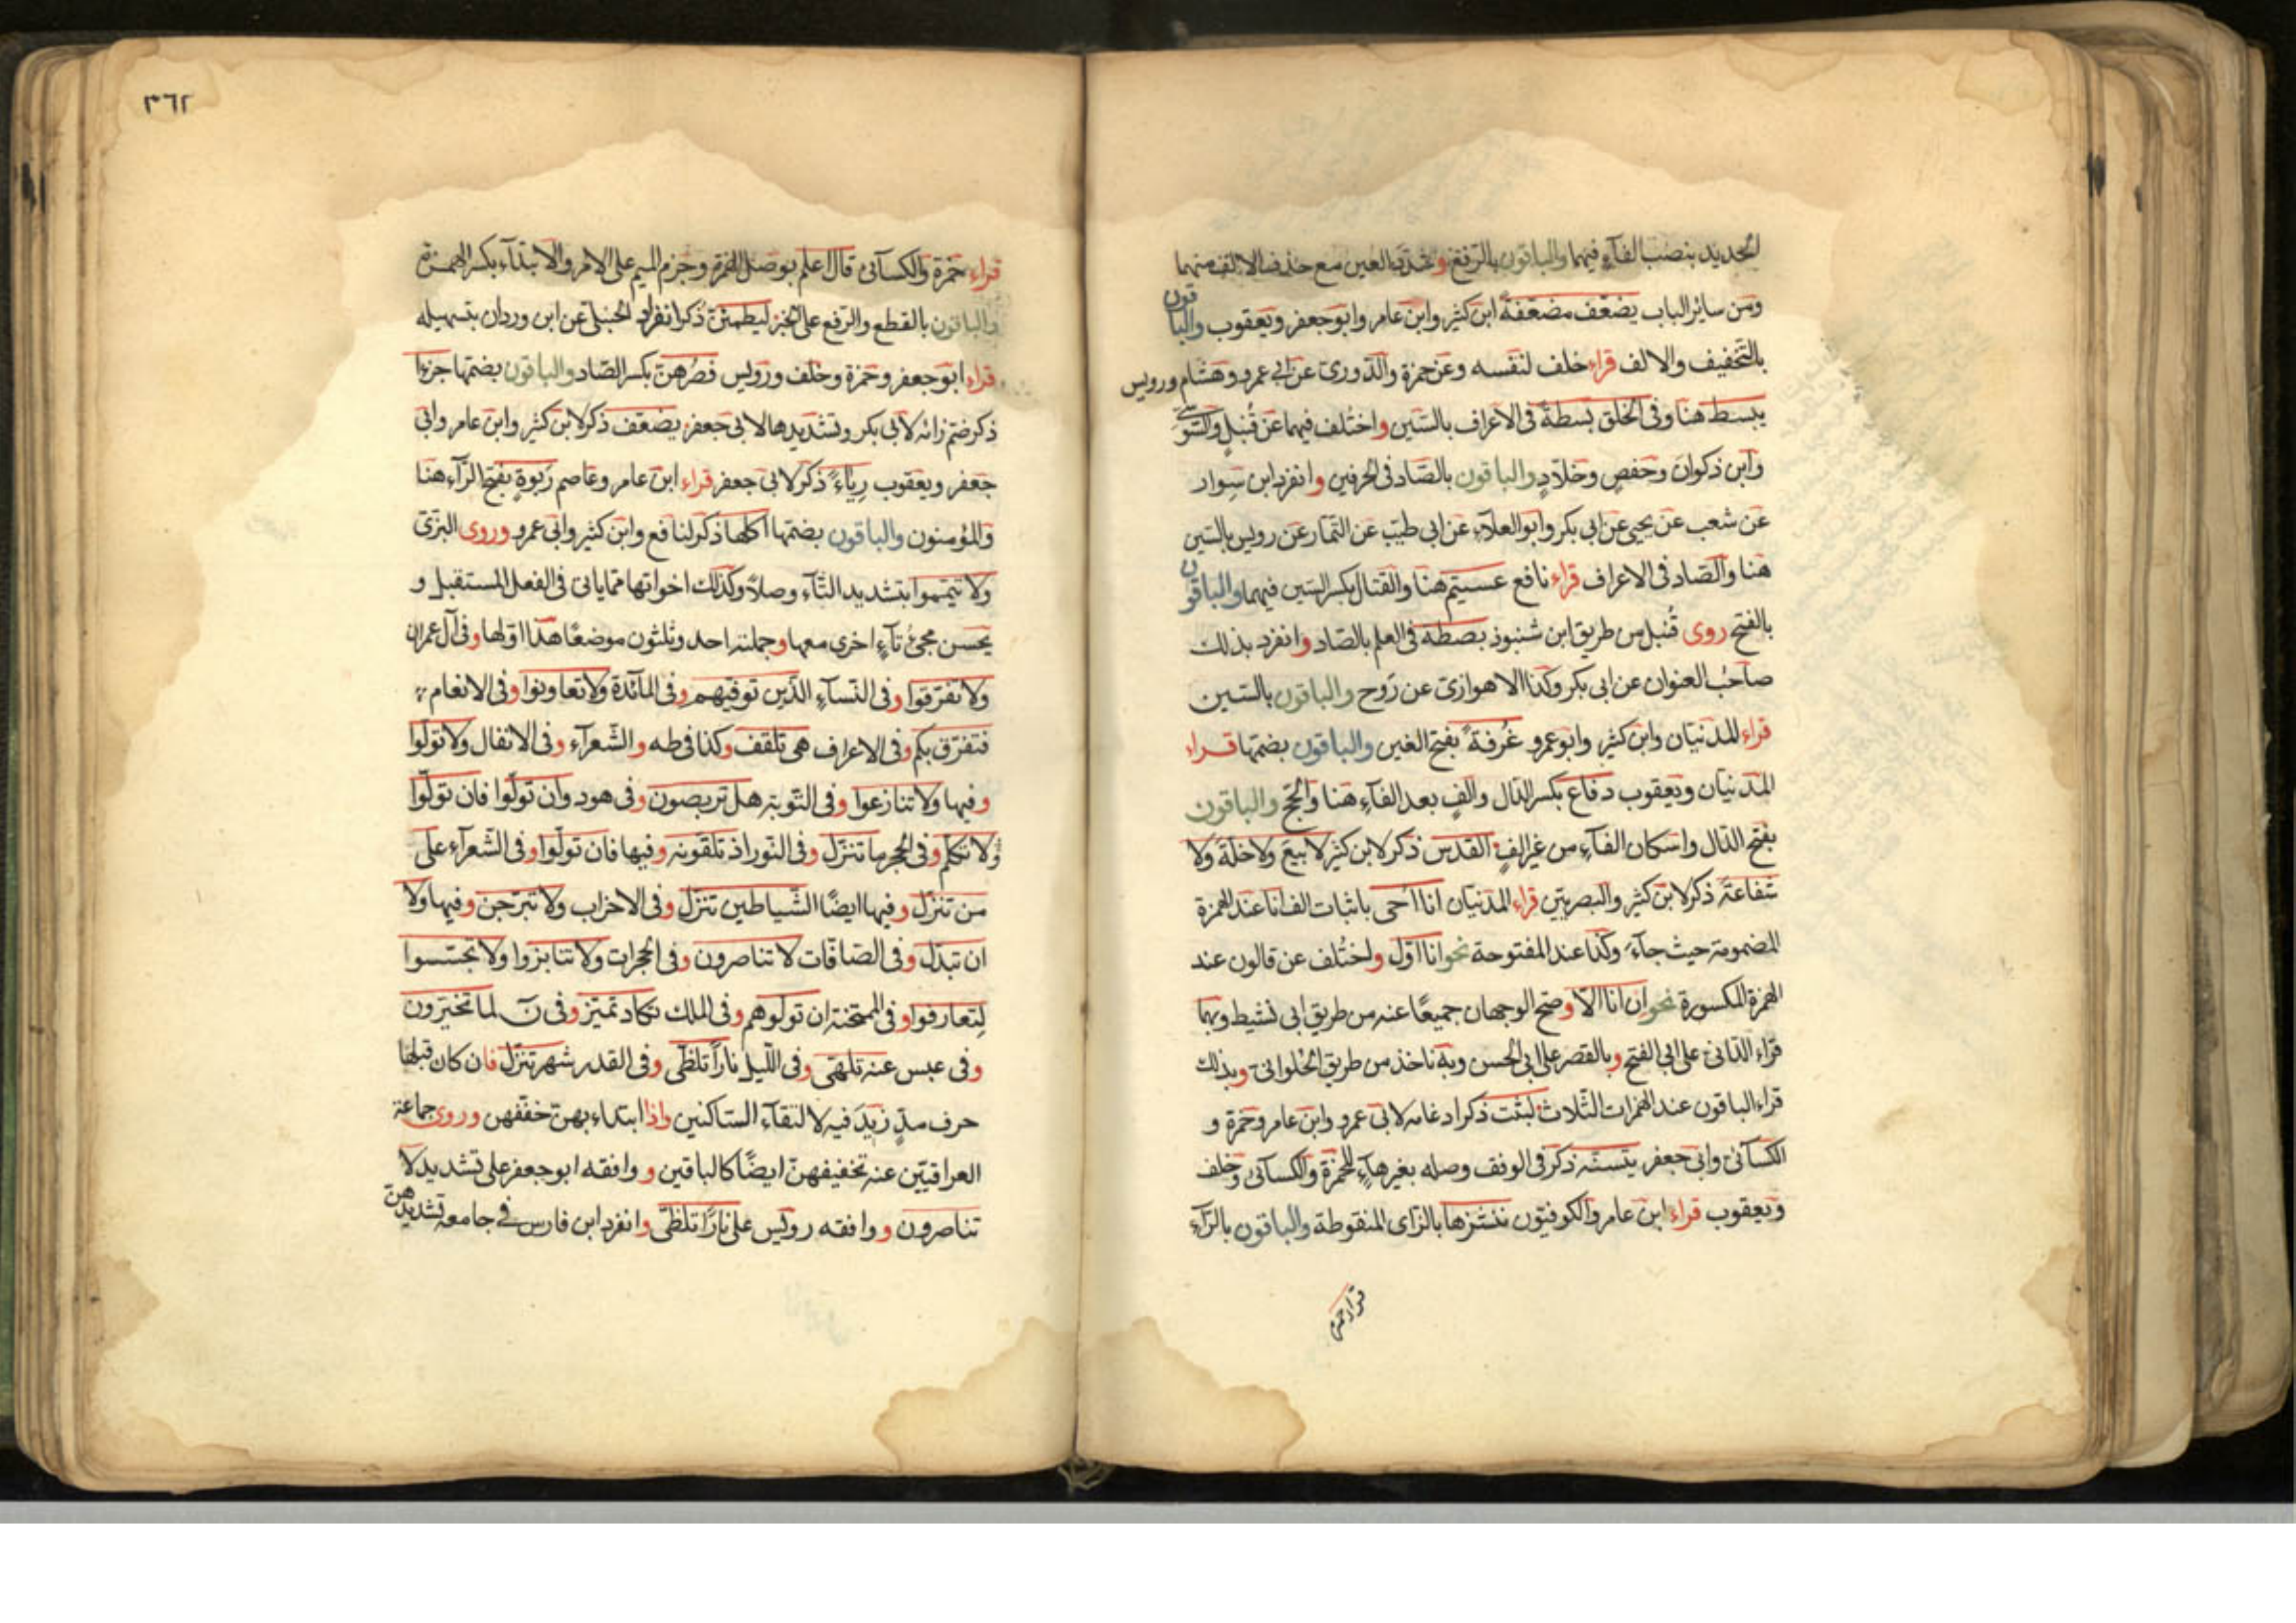 الحديد بنصب الفآء فيهما والباقون بالرفع وشدّد العين مع حذف الالف منهما
ومن سائر الباب يضعّف مضعّفة ابن كثير وابن عامر وابو جعفر ويعقوب والباقون
بالتخفيف والالف قراء خلف لنفسه وعن حمزة والدّورى عن ابى عمرو وهشام ورويس
يبسط هنا وفى الخلق بسطة فى الاعراف بالسّين واختُلف فيهما عن قُنبل والسّوسىّ
وابن ذكوان وحفص وخلّاد والباقون بالصّاد فى الحرفين وانفرد ابن سِوار
عن شعب عن يحيى عن ابى بكر وابو العلآء عن ابى طيّب عن التمّار عن رويس بالسّين
هنا والصّاد فى الاعراف قراء نافع عسيتم هنا والقتال بكسر السّين فيهما والباقون
بالفتح روى قُنبل من طريق ابن شنبوذ بصطه فى العلم بالصّاد وانفرد بذلك
صاحبُ العنوان عن ابى بكر وكذا الاهوازى عن رَوح والباقون بالسّين
قراء المدنيّان وابن كثير وابو عمرو غَرفة بفتح الغين والباقون بضمّها قراء
المدنيّان ويعقوب دفاع بكسر الدّال والفٍ بعد الفآء هنا والحجّ والباقون
بفتح الدّال واسكان الفآء من غير الفٍ القدس ذكر لابن كثير لا بيع ولا خلّة ولا
شفاعة ذكر لابن كثير والبصريّين قراء المدنيّان انا احى باثبات الف انا عند الهمزة
المضمومة حيث جآء وكذا عند المفتوحة نحو انا اوّل واختُلف عن قالون عند
الهمزة المكسورة نحو ان انا الّا وصحّ الوجهان جميعًا عنه من طريق ابى نشيط وبهما
قراء الدّانى على ابى الفتح وبالقصر على ابى الحسن وبه ناخذ من طريق الحُلوانى وبذلك
قراء الباقون عند الهمزات الثّلاث لبثت ذكر ادغامه لابى عمرو وابن عامر وحمزة و
الكسآئى وابى جعفر يتسنّه ذكر فى الوقف وصله بغير هآء لحمزة والكسآئى وخلف
ويعقوب قراء ابن عامر والكوفيّون ننشزها بالزّاى المنقوطة والباقون بالرّآء
قراء حمزة
٣٦٢
قراء حمزة والكسآئى قال اعلم بوصل الهمزة وجزم الميم على الامر والابتدآء بكسر الهمزة
والباقون بالقطع والرّفع على الخبر ليطمئنّ ذكر انفراد الحنبلى عن ابن وردان بتسهيله
قراء ابو جعفر وحمزة وخلف ورويس فصُرهنّ بكسر الصّاد والباقون بضمّها جزءا
ذكر ضمّ زائه لابى بكر وتشديدها لابى جعفر يضعّف ذكر لابن كثير وابن عامر وابى
جعفر ويعقوب رياء ذكر لابى جعفر قراء ابن عامر وعاصم رَبوة بفتح الرّآء هنا
والمؤمنون والباقون بضمّها اكلها ذكر لنافع وابن كثير وابى عمرو وروى البزىّ
ولا تيمّموا بتشديد التّآء وصلاً وكذلك اخواتها ممّا ياتى فى الفعل المستقبل و
يحسن مجئ تآء اخرى معها وجملته احد وثلثون موضعًا هذا اوّلها وفى آل عمران
ولا تفرّقوا وفى النّسآء الذين توفّيهم وفى المآئدة ولا تعاونوا وفى الانعام
فتفرّق بكم وفى الاعراف هى تلقف وكذا فى طه والشّعرآء وفى الانفال ولا تولّوا
وفيها ولا تنازعوا وفى التّوبة هل تربصون وفى هود وان تولّوا فان تولّوا
ولا تكلّم وفى الحجر ما تنزّل وفى النّور اذ تلقونه وفيها فان تولّوا وفى الشّعرآء على
من تنزّل وفيها ايضًا الشّياطين تنزّل وفى الاحزاب ولا تبرّجن وفيها ولا
ان تبدّل وفى الصّافّات لا تناصرون وفى الحجرات ولا تنابزوا ولا تجسّسوا
لتعارفوا وفى الممتحنة ان تولّوهم وفى الملك تكاد تميّز وفى نٓ لما تخيّرون
وفى عبس عنه تلهّى وفى اللّيل نارًا تلظّى وفى القدر شهر تنزّل فان كان قبلها
حرف مدّ زيد فيه لالتقآء السّاكنين واذا ابتداء بهنّ خفّفهن وروى جماعة
العراقيّين عنه تخفيفهنّ ايضًا كالباقين ووافقه ابو جعفر على تشديد لا
تناصرون ووافقه رويس على نارًا تلظّى وانفرد ابن فارس فى جامعه تشديدهنّ